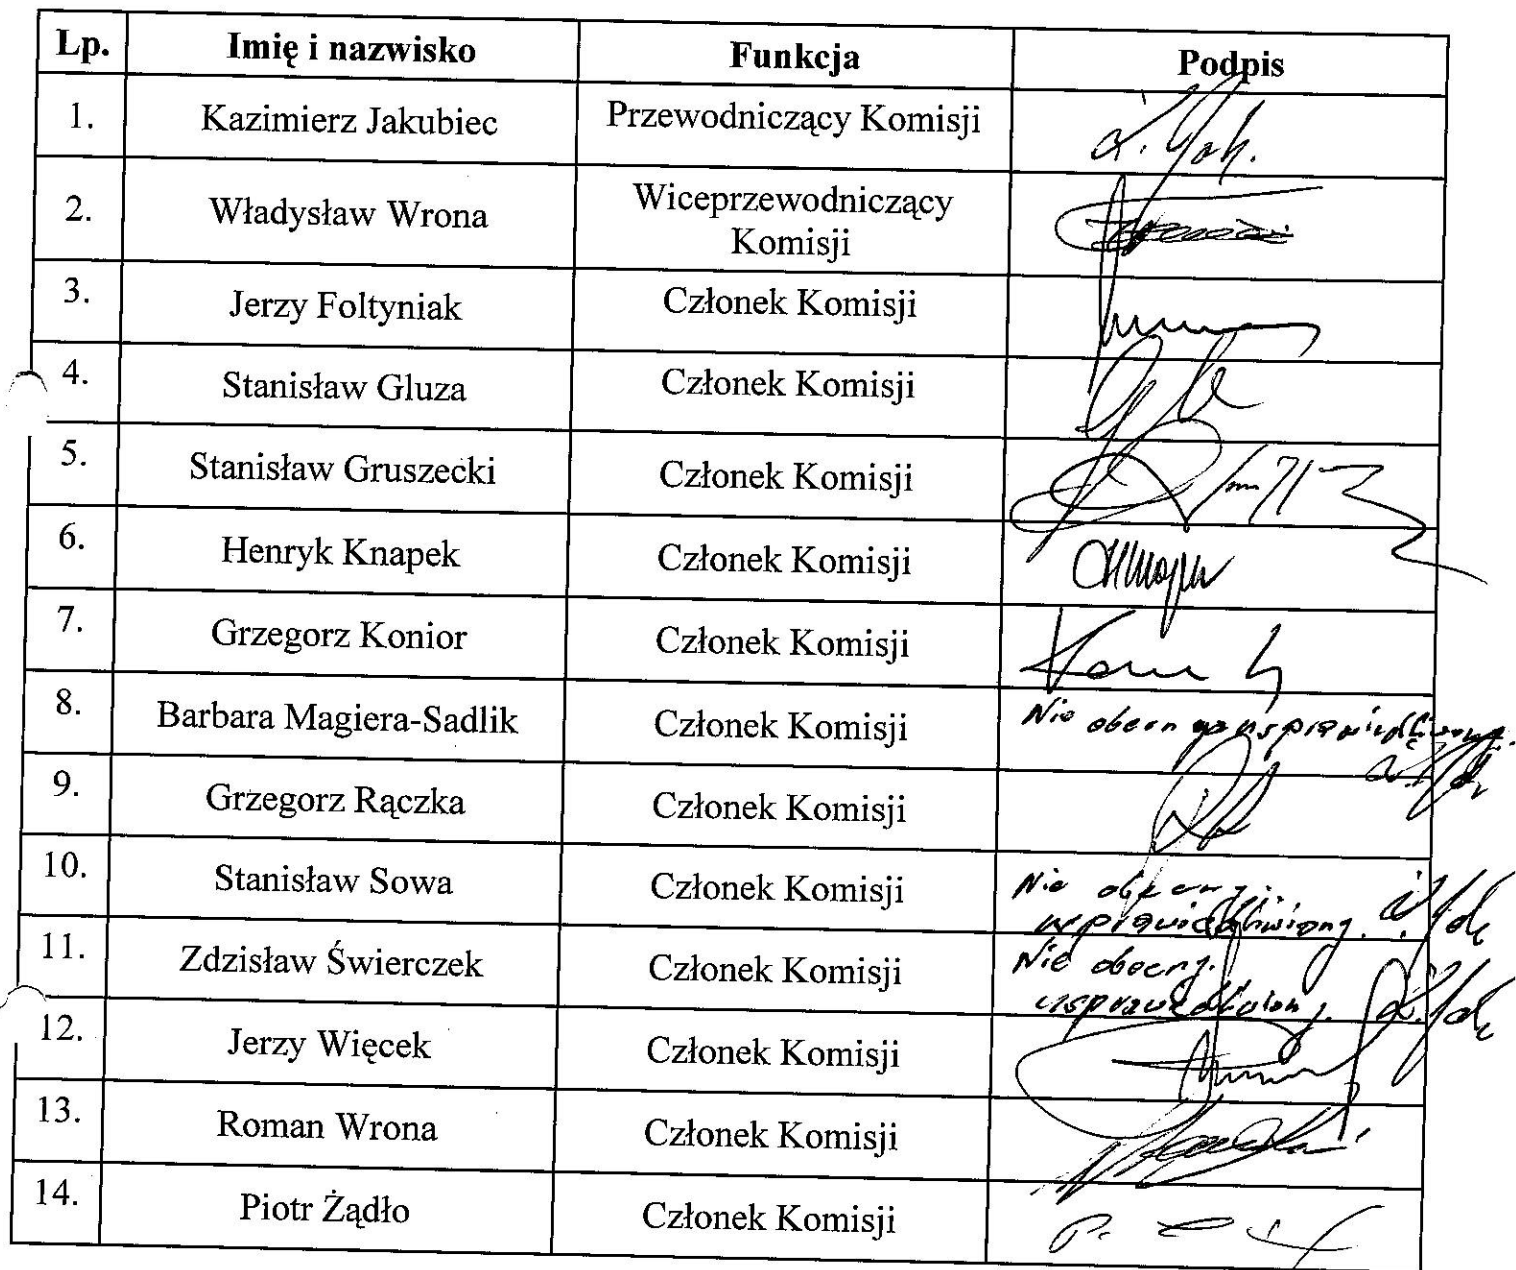 Lp. Imię i nazwisko Funkcja Podpis
1. Kazimierz Jakubiec Przewodniczący Komisji
2. Władysław Wrona Wiceprzewodniczący
Komisji
3. Jerzy Foltyniak Członek Komisji
4. Stanisław Gluza Członek Komisji
5. Stanisław Gruszecki Członek Komisji
6. Henryk Knapek Członek Komisji
7. Grzegorz Konior Członek Komisji
8. Barbara Magiera-Sadlik Członek Komisji Nie
9. Grzegorz Rączka Członek Komisji
10. Stanisław Sowa Członek Komisji Nie obecny.
11. Zdzisław Świerczek Członek Komisji Nie obecny.
12. Jerzy Więcek Członek Komisji
13. Roman Wrona Członek Komisji
14. Piotr Żądło Członek Komisji